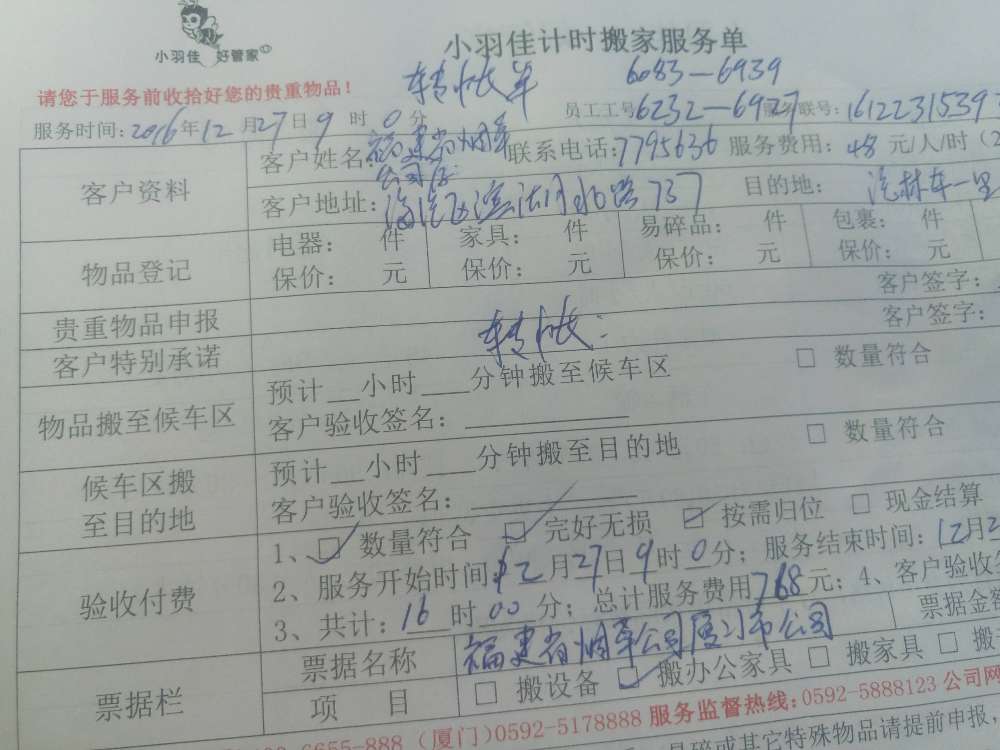 小羽佳 好管家
小羽佳计时搬家服务单
请您于服务前收拾好您的贵重物品！
转帐单 6083-6939
服务时间：2016年12月27日9时0分 员工工号6232-6927 联号：1612231539
客户资料
客户姓名：福建省烟草公司厦 联系电话：7795636 服务费用：48元/人/时（2
客户地址： 737 目的地：
物品登记
电器： 件 家具： 件 易碎品： 件 包裹： 件
保价： 元 保价： 元 保价： 元 保价： 元
贵重物品申报 客户签字：
客户特别承诺 转帐： 客户签字：
物品搬至候车区
预计__小时___分钟搬至候车区 □ 数量符合
客户验收签名：
候车区搬至目的地
预计__小时___分钟搬至目的地 □ 数量符合
客户验收签名：
验收付费
1、☑ 数量符合 ☑ 完好无损 ☑ 按需归位 □ 现金结算
2、服务开始时间：12月27日9时0分；服务结束时间：12月2
3、共计：16时00分；总计服务费用768元；4、客户验收
票据栏
票据名称 福建省烟草公司厦门市公司 票据金额
项 目 □ 搬设备 ☑ 搬办公家具 □ 搬家具 □ 搬
6655-888（厦门）0592-5178888 服务监督热线：0592-5888123 公司网
易碎或其它特殊物品请提前申报，